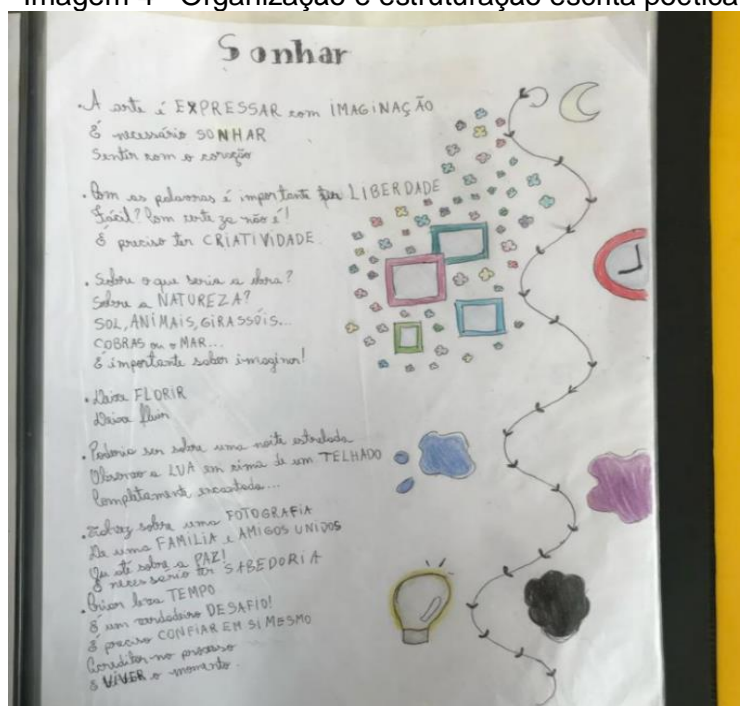 Imagem 4 - Organização e estruturação escrita poética
Sonhar
• A arte é EXPRESSAR com IMAGINAÇÃO
É necessário SONHAR
Sentir com o coração
• Com as palavras é importante ter LIBERDADE
Fácil? Com certeza não é!
É preciso ter CRIATIVIDADE
• Sobre o que seria a obra?
Sobre a NATUREZA?
SOL, ANIMAIS, GIRASSÓIS...
COBRAS ou o MAR...
É importante saber imaginar!
• Deixa FLORIR
Deixa fluir
• Poderia ser sobre uma noite estrelada
Observo a LUA em cima de um TELHADO
Completamente encantada...
• Talvez sobre uma FOTOGRAFIA
De uma FAMÍLIA e AMIGOS UNIDOS
Ou até sobre a PAZ!
É necessário ter SABEDORIA
• Criar leva TEMPO
É um verdadeiro DESAFIO!
É preciso CONFIAR EM SI MESMO
Acreditar no processo
E VIVER o momento.